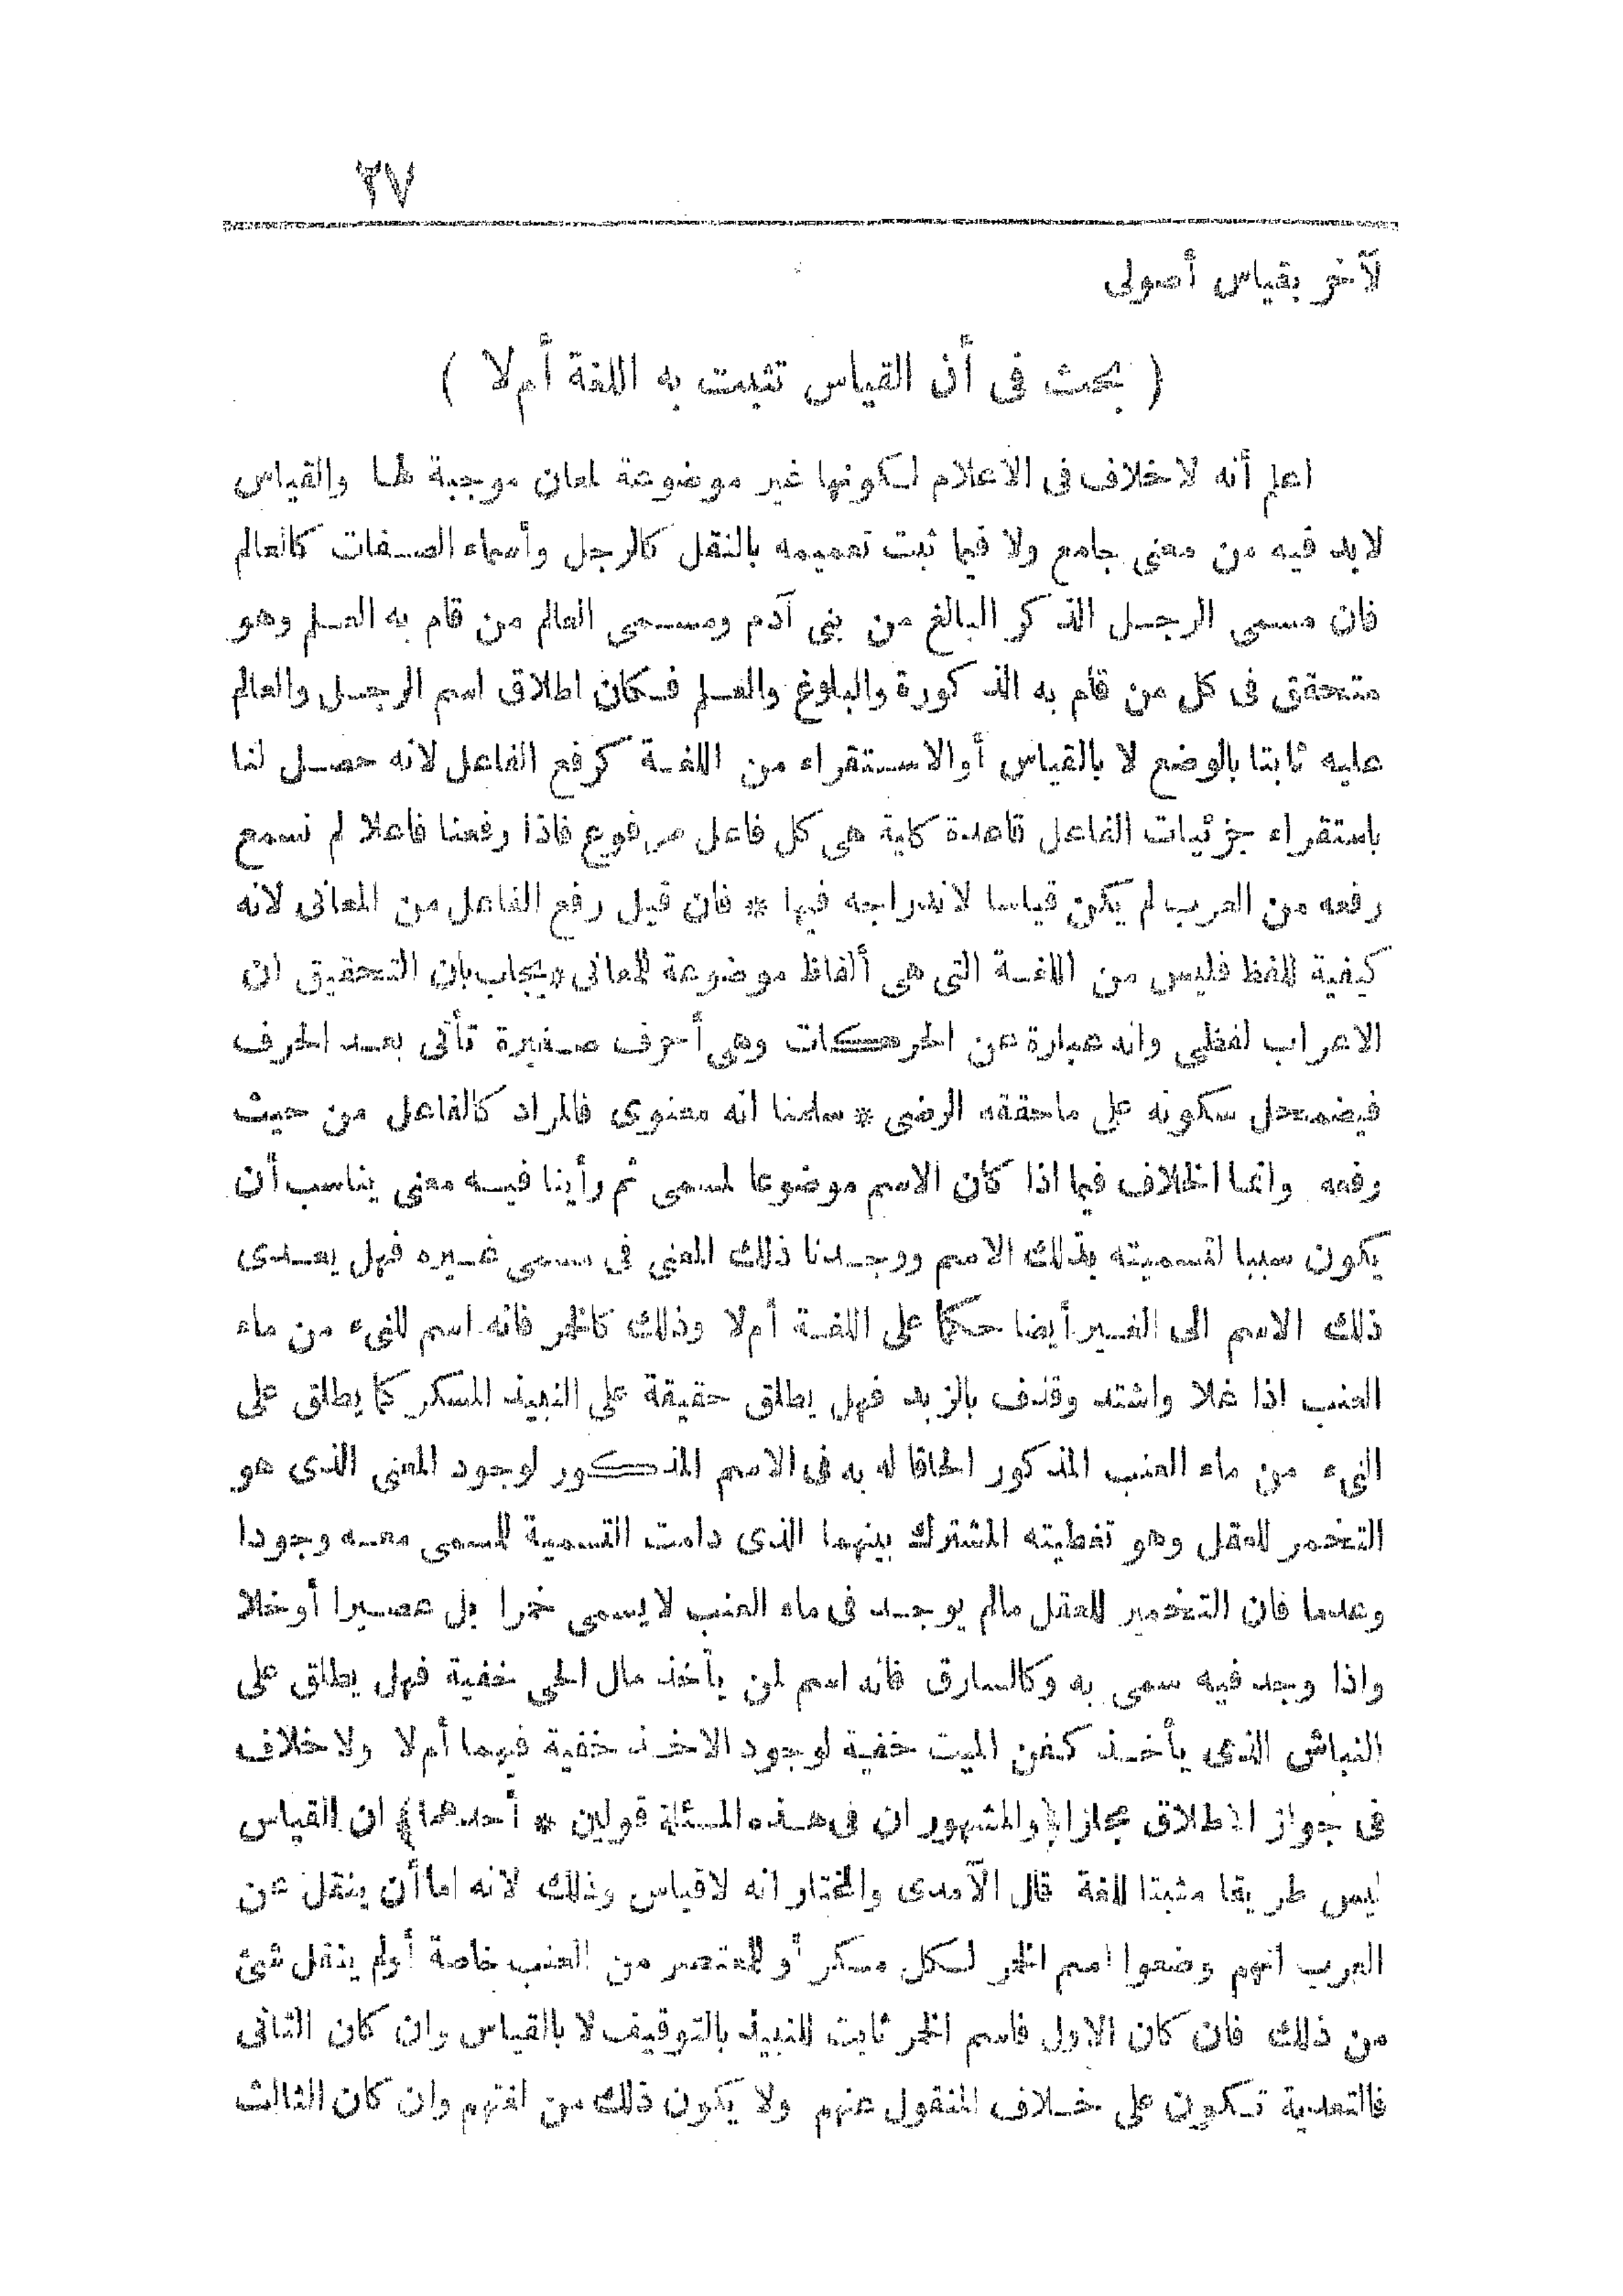 ٢٧
لآخر بقياس أصولى
( بحث فى أن القياس تثبت به اللغة أم لا )
اعلم أنه لاخلاف فى الاعلام لكونها غير موضوعة لمعان موجبة لها والقياس
لابد فيه من معنى جامع ولا فيما ثبت تعميمه بالنقل كالرجل وأسماء الصفات كالعالم
فان مسمى الرجل الذكر البالغ من بنى آدم ومسمى العالم من قام به العلم وهو
متحقق فى كل من قام به الذكورة والبلوغ والعلم فكان اطلاق اسم الرجل والعالم
عليه ثابتا بالوضع لا بالقياس أوالاستقراء من اللغة كرفع الفاعل لانه حصل لنا
باستقراء جزئيات الفاعل قاعدة كلية هى كل فاعل مرفوع فاذا رفعنا فاعلا لم نسمع
رفعه من العرب لم يكن قياسا لاندراجه فيها * فان قيل رفع الفاعل من المعانى لانه
كيفية للفظ فليس من اللغة التى هى ألفاظ موضوعة للمعانى * يجاب بان التحقيق ان
الاعراب لفظى وانه عبارة عن الحركات وهى أحرف صغيرة تأتى بعد الحرف
فيضمحل سكونه على ماحققه الرضى * سلمنا انه معنوى فالمراد كالفاعل من حيث
رفعه وانما الخلاف فيما اذا كان الاسم موضوعا لمسمى ثم رأينا فيه معنى يناسب أن
يكون سببا لتسميته بذلك الاسم ووجدنا ذلك المعنى فى مسمى غيره فهل يعدى
ذلك الاسم الى الغير أيضا حكما على اللغة أم لا وذلك كالخمر فانه اسم للنىء من ماء
العنب اذا غلا واشتد وقذف بالزبد فهل يطلق حقيقة على النبيذ المسكر كما يطلق على
النىء من ماء العنب المذكور الحاقا له به فى الاسم المذكور لوجود المعنى الذى هو
التخمر للعقل وهو تغطيته المشترك بينهما الذى دامت التسمية للمسمى معه وجودا
وعدما فان التخمير للعقل مالم يوجد فى ماء العنب لايسمى خمرا بل عصيرا أوخلا
واذا وجد فيه سمى به وكالسارق فانه اسم لمن يأخذ مال الحى خفية فهل يطلق على
النباش الذى يأخذ كفن الميت خفية لوجود الاخذ خفية فيهما أم لا ولاخلاف
فى جواز الاطلاق مجازا والمشهور ان فى هذه المسئلة قولين * أحدهما ان القياس
ليس طريقا مثبتا للغة قال الآمدى والمختار انه لاقياس وذلك لانه اما أن ينقل عن
العرب انهم وضعوا اسم الخمر لكل مسكر أو للمعتصر من العنب خاصة أولم ينقل شئ
من ذلك فان كان الاول فاسم الخمر ثابت للنبيذ بالتوقيف لا بالقياس وان كان الثانى
فالتعدية تكون على خلاف المنقول عنهم ولا يكون ذلك من لغتهم وان كان الثالث